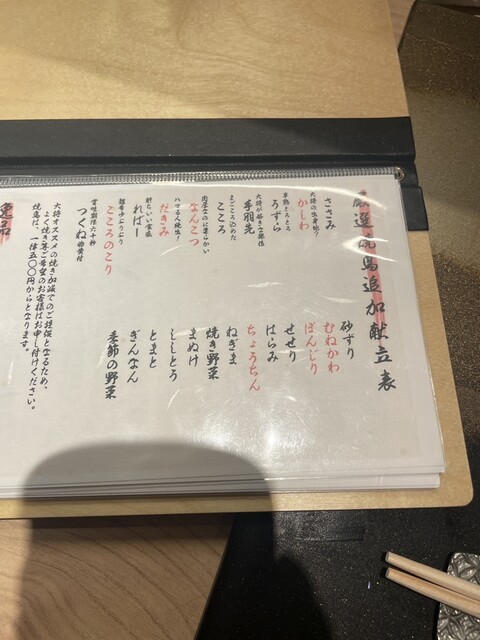 厳選焼鳥追加献立表
ささみ
大将の生身他?
かしわ
半熟とろとろ
うずら
大将が好きな部位
手羽先
まごころ込めた
こころ
肉屋なのに柔らかい
なんこつ
ハマる人続出!
だきみ
鮮ちいい食感
ればー
超希少ぷりぷり
こころのこり
賞味期限六十秒
つくね 卵黄付
砂ずり
むねかわ
ぼんじり
せせり
はらみ
ちょうちん
ねぎま
焼き野菜
まぬけ
ししとう
とまと
ぎんなん
季節の野菜
大将オススメの焼き加減でのご提供となるため、
よく焼き等ご希望のお客様はお申し付けください。
焼鳥は、一律五〇〇円からとなります。